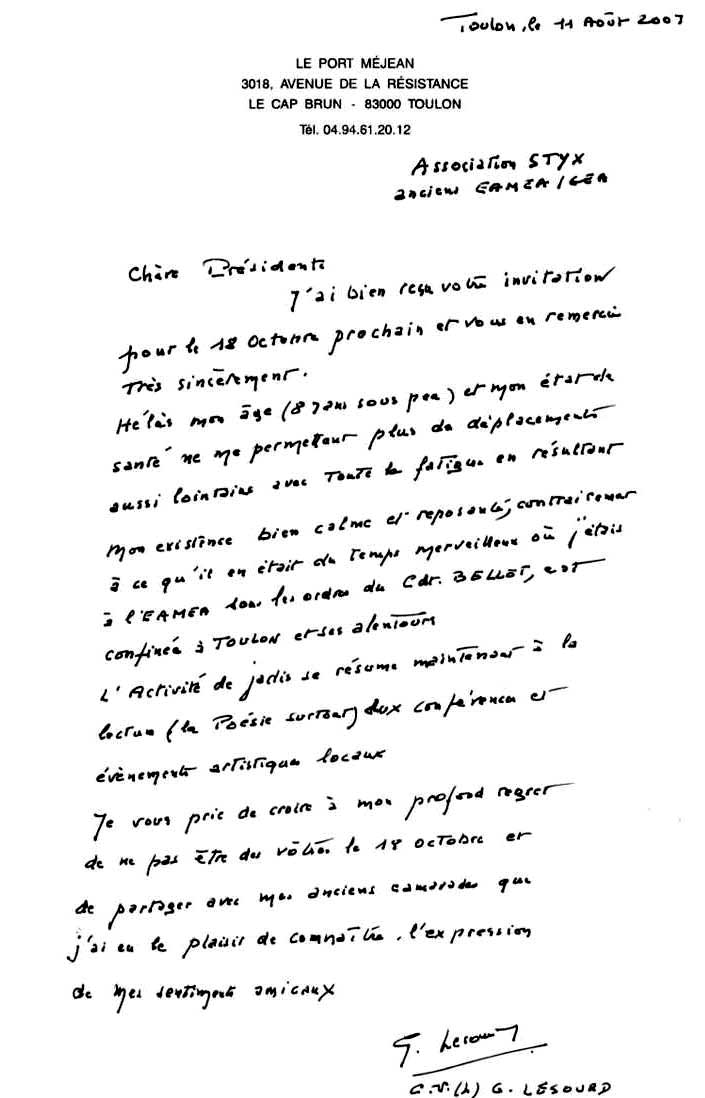 Toulon, le 11 Août 2007
LE PORT MÉJEAN
3018, AVENUE DE LA RÉSISTANCE
LE CAP BRUN - 83000 TOULON
Tél. 04.94.61.20.12
Association STYX
anciens EAMEA/GEA
Chère Présidente
J'ai bien reçu votre invitation
pour le 18 Octobre prochain et vous en remercie
Très sincèrement.
Hélàs mon âge (87 ans sous peu) et mon état de
santé ne me permettant plus de déplacements
aussi lointains avec toute la fatigue en résultant
Mon existence bien calme et reposante, contrairement
à ce qu'il en était du temps merveilleux où j'étais
à l'EAMEA sous les ordres du Cdt. BELLET, est
confinée à TOULON et ses alentours
L'Activité de jadis se résume maintenant à la
lecture (la Poésie surtout) aux conférences et
évènements artistiques locaux
Je vous prie de croire à mon profond regret
de ne pas être des vôtres le 18 octobre et
de partager avec mes anciens camarades que
j'ai eu le plaisir de connaître, l'expression
de mes sentiments amicaux
G. Lesourd
C.V.(h) G. LESOURD